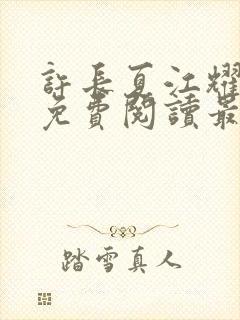 許長夏江耀
免費閱讀最
踏雪真人